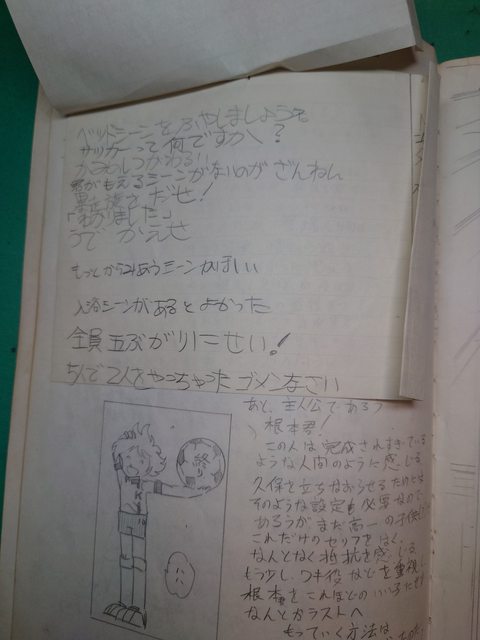 ベットシーンをふやしましょうよ
サッカーって何ですか？
がないのがざんねん
だせ！
「わかりました」
うで かえせ
もっとからみあうシーンがほしい
入浴シーンがあるとよかった
全員五ぶがりにせい！
5人で2人をやっちゃった ゴメンなさい
終り
K
あと、主人公である
根本君！
この人は完成されすぎている
ような人間のように感じる
久保を立ちなおらせるためには
そのような設定も必要なので
あろうが、まだ高一の子供に
これだけのセリフをはく、
なんとなく抵抗を感じる
もう少し、ワキ役などを重視し
根本をこれほどのいい子にせず
なんとかラストへ
もっていく方法は